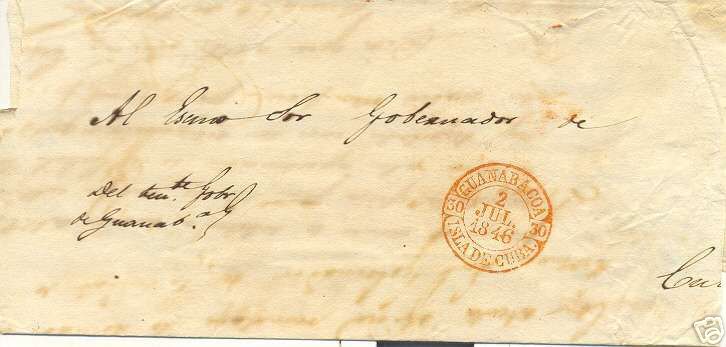 Al Escmo Sor Gobernador de
Del tente Gobr
de Guanaba
GUANABACOA
2
JUL.
1846
30 30
ISLA DE CUBA